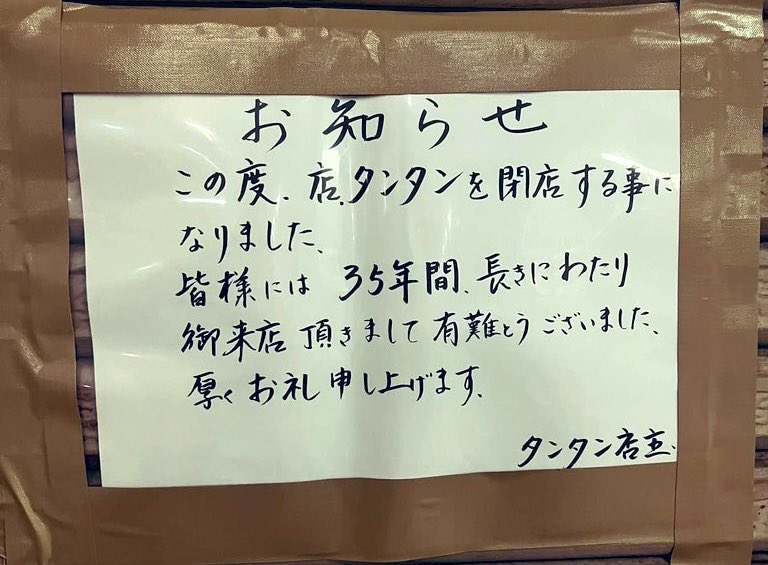 お知らせ
この度、店、タンタンを閉店する事に
なりました、
皆様には 35年間、長きにわたり
御来店頂きまして有難とうございました、
厚くお礼申し上げます、
タンタン店主、